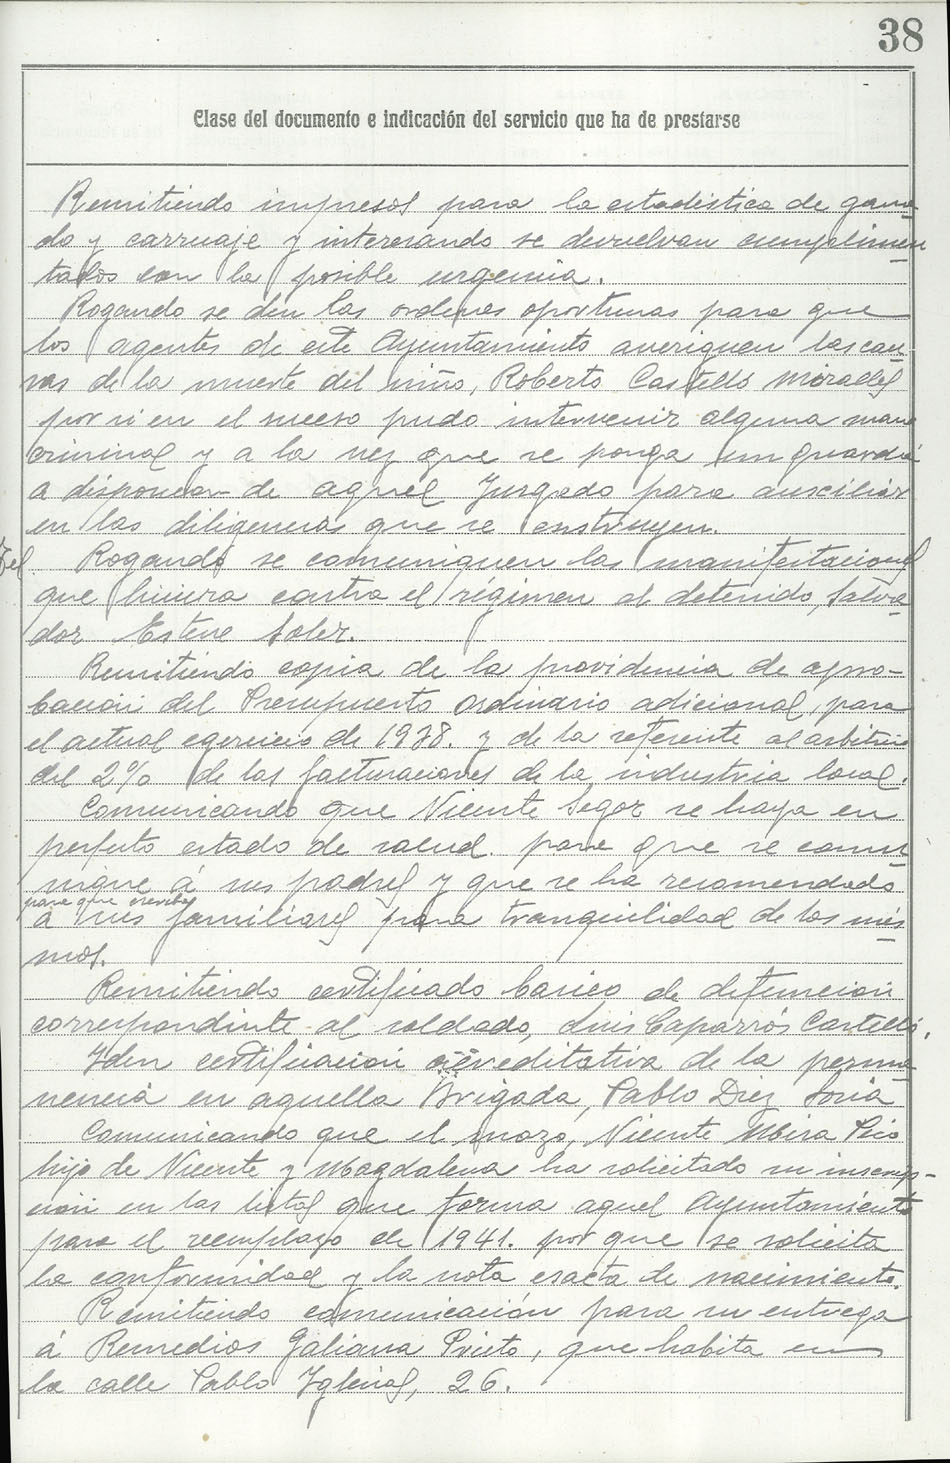 38
Clase del documento e indicación del servicio que ha de prestarse
Remitiendo impresos para la estadistica de gana
do y carruaje y interesando se devuelvan cumplimen
tados con la posible urgencia.
Rogando se den las ordenes oportunas para que
los agentes de este Ayuntamiento averiguen las cau
sas de la muerte del niño, Roberto Castelló Miralles
por si en el suceso pudo intervenir alguna mano
criminal y a la vez que se ponga un guardia
a disposicion de aquel Juzgado para auxiliar
en las diligencias que se enstruyen.
Rogando se comuniquen las manifestaciones
que hiciera contra el régimen el detenido, Salva
dor Esteve Soler.
Remitiendo copia de la providencia de apro-
bación del Presupuesto ordinario adicional, para
el actual egercicio de 1938. y de la referente al arbitrio
del 2% de las facturaciones de la industria local.
Comunicando que Vicente Segor se haya en
perfecto estado de salud. para que se comu
nique á sus padres y que se ha recomendado
para que escriba
á sus familiares para tranquilidad de los mis
mos.
Remitiendo certificado de defunción
correspondiente al soldado, Luis Caparrós Castelló.
Iden certificación acreditativa de la perma
nencia en aquella Brigada, Pablo Diez Soria
Comunicando que el mozo, Vicente Mira Picó
hijo de Vicente y Magdalena ha solicitado su inscrip-
ción en las listas que forma aquel Ayuntamiento
para el reemplazo de 1941. por que se solicita
la conformidad y la nota esacta de nacimiento.
Remitiendo comunicación para su entrega
á Remedios Galiana Prieto, que habita en
la calle Pablo Iglesias, 26.